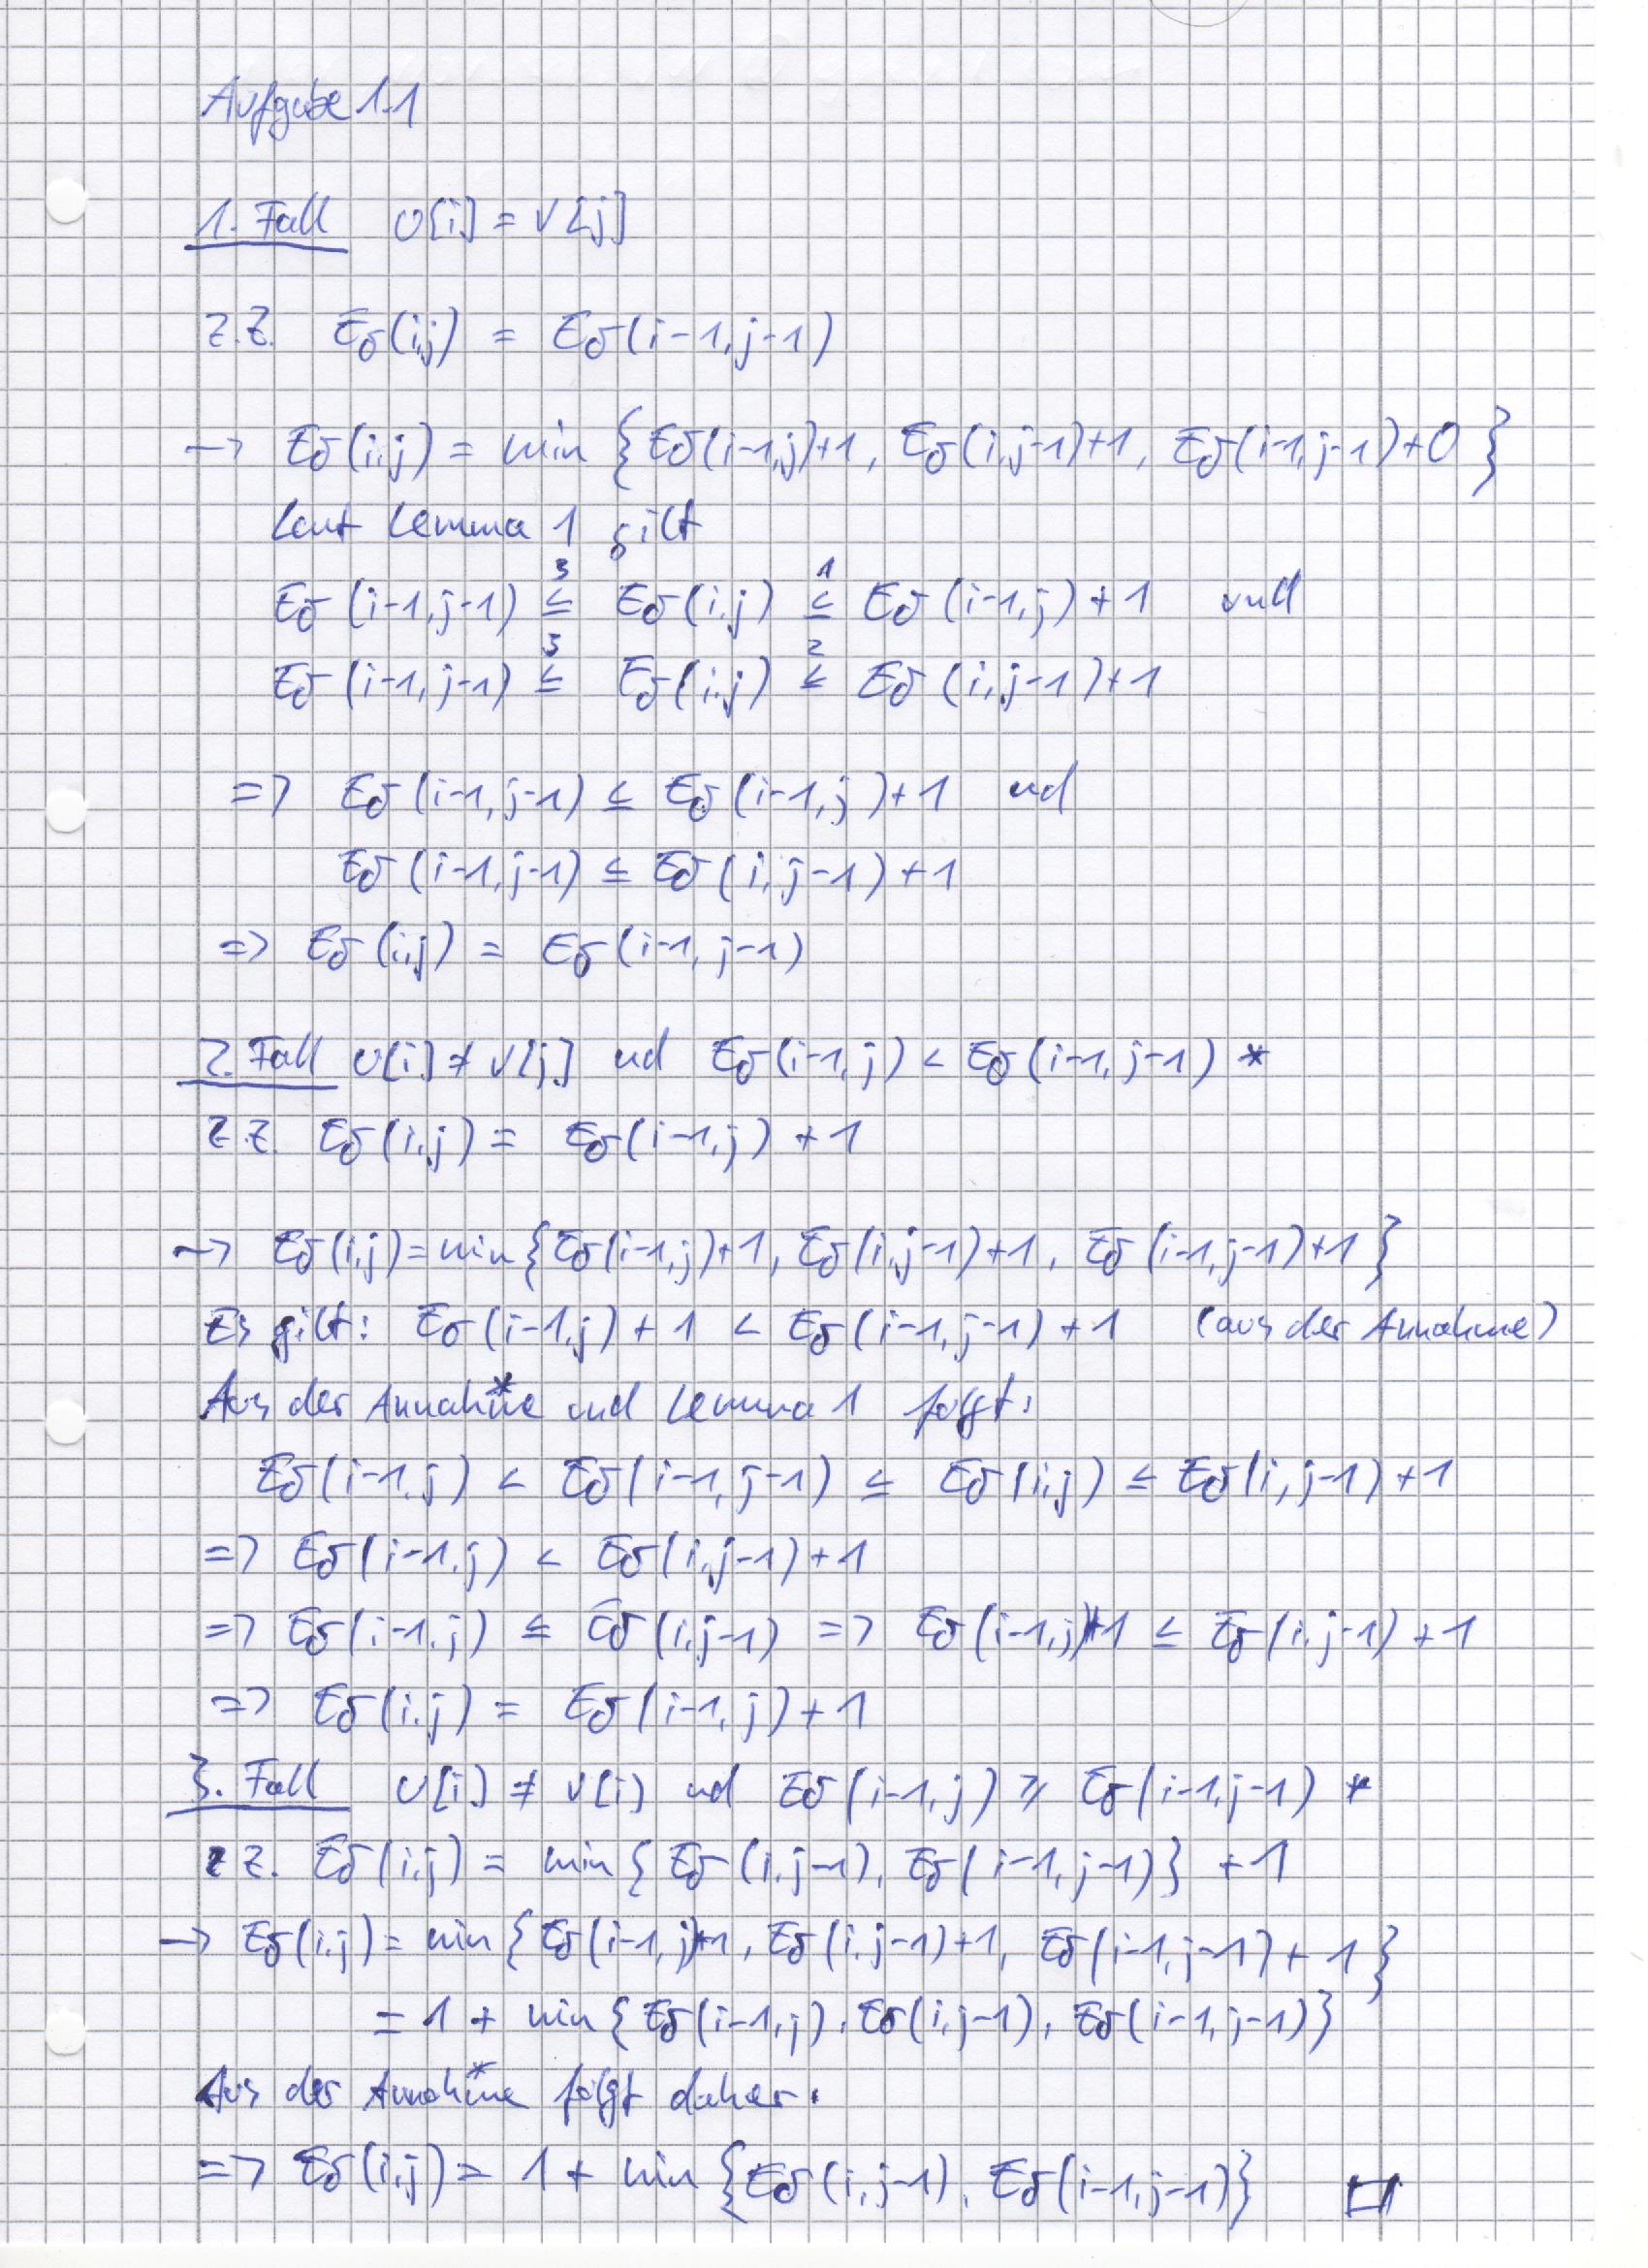 Aufgabe 1.1
1. Fall U[i] = V[j]
z.Z. Eδ(i,j) = Eδ(i-1,j-1)
→ Eδ(i,j) = min {Eδ(i-1,j)+1, Eδ(i,j-1)+1, Eδ(i-1,j-1)+0}
Laut Lemma 1 gilt
3 1
Eδ(i-1,j-1) ≤ Eδ(i,j) ≤ Eδ(i-1,j)+1 und
3 2
Eδ(i-1,j-1) ≤ Eδ(i,j) ≤ Eδ(i,j-1)+1
=> Eδ(i-1,j-1) ≤ Eδ(i-1,j)+1 und
Eδ(i-1,j-1) ≤ Eδ(i,j-1)+1
=> Eδ(i,j) = Eδ(i-1,j-1)
2. Fall U[i] ≠ V[j] und Eδ(i-1,j) < Eδ(i-1,j-1) *
z.z. Eδ(i,j) = Eδ(i-1,j) +1
→ Eδ(i,j)=min{Eδ(i-1,j)+1, Eδ(i,j-1)+1, Eδ(i-1,j-1)+1}
Es gilt: Eδ(i-1,j)+1 < Eδ(i-1,j-1)+1 (aus der Annahme)
Aus der Annahme* und Lemma 1 folgt:
Eδ(i-1,j) < Eδ(i-1,j-1) ≤ Eδ(i,j) ≤ Eδ(i,j-1)+1
=> Eδ(i-1,j) < Eδ(i,j-1)+1
=> Eδ(i-1,j) ≤ Eδ(i,j-1) => Eδ(i-1,j)+1 ≤ Eδ(i,j-1)+1
=> Eδ(i,j) = Eδ(i-1,j)+1
3. Fall U[i] ≠ V[i] und Eδ(i-1,j) ≥ Eδ(i-1,j-1) *
zz. Eδ(i,j) = min{Eδ(i,j-1), Eδ(i-1,j-1)} +1
→ Eδ(i,j) = min{Eδ(i-1,j)+1, Eδ(i,j-1)+1, Eδ(i-1,j-1)+1}
= 1 + min{Eδ(i-1,j), Eδ(i,j-1), Eδ(i-1,j-1)}
Aus der Annahme* folgt daher:
=> Eδ(i,j) = 1 + min{Eδ(i,j-1), Eδ(i-1,j-1)} □